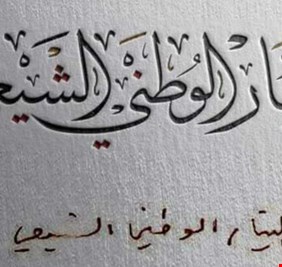 ـار الوطني الشيعـ
التيار الوطني الشيعي